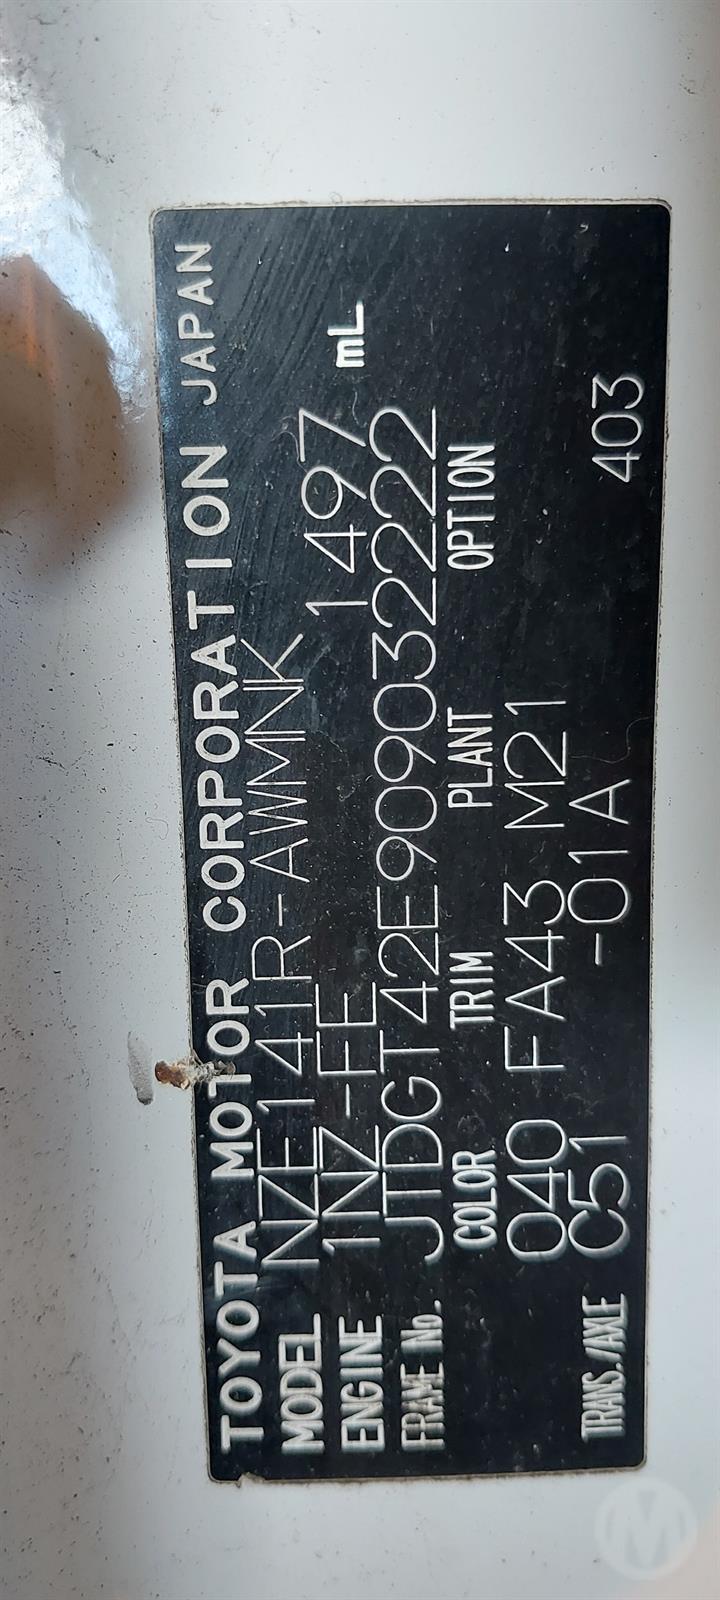 TOYOTA MOTOR CORPORATION JAPAN
MODEL NZE141R-AWMNK
ENGINE 1NZ-FE 1497 mL
FRAME No. JTDGT42E909032222
COLOR TRIM PLANT OPTION
040 FA43 M21
TRANS./AXLE C51 -01A 403
M